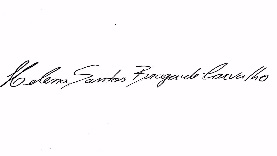 Helena Santos Braga de Carvalho